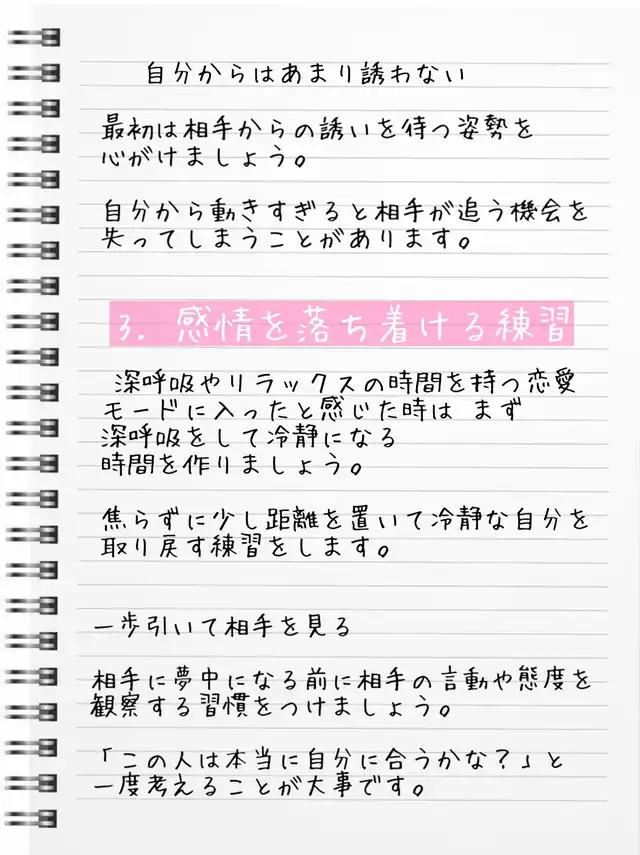 自分からはあまり誘わない
最初は相手からの誘いを待つ姿勢を
心がけましょう。
自分から動きすぎると相手が追う機会を
失ってしまうことがあります。
3. 感情を落ち着ける練習
深呼吸やリラックスの時間を持つ恋愛
モードに入ったと感じた時は まず
深呼吸をして冷静になる
時間を作りましょう。
焦らずに少し距離を置いて冷静な自分を
取り戻す練習をします。
一歩引いて相手を見る
相手に夢中になる前に相手の言動や態度を
観察する習慣をつけましょう。
「この人は本当に自分に合うかな?」と
一度考えることが大事です。